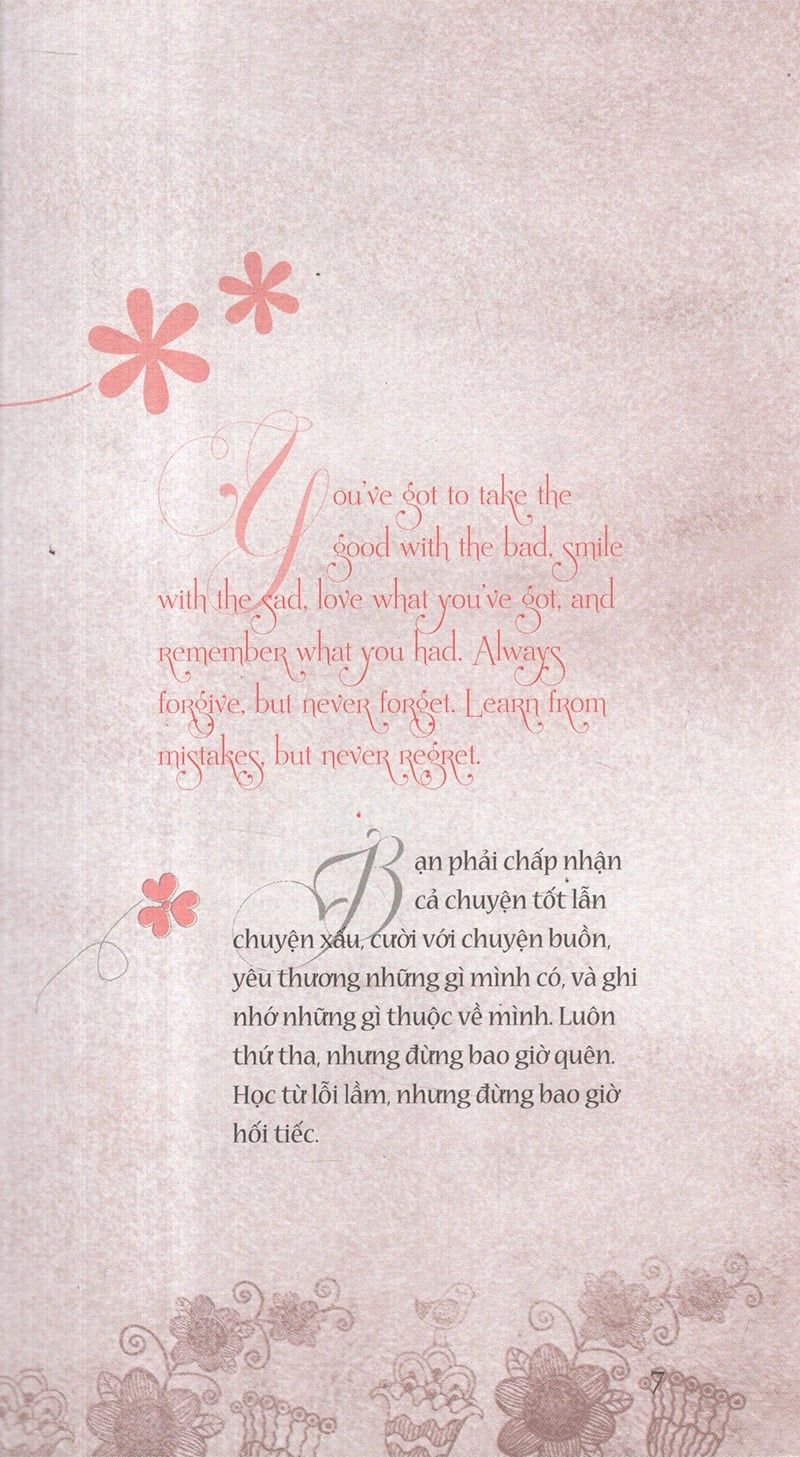 You've got to take the
good with the bad, smile
with the sad, love what you've got, and
remember what you had. Always
forgive, but never forget. Learn from
mistakes, but never regret.
Bạn phải chấp nhận
cả chuyện tốt lẫn
chuyện xấu, cười với chuyện buồn,
yêu thương những gì mình có, và ghi
nhớ những gì thuộc về mình. Luôn
thứ tha, nhưng đừng bao giờ quên.
Học từ lỗi lầm, nhưng đừng bao giờ
hối tiếc.
7